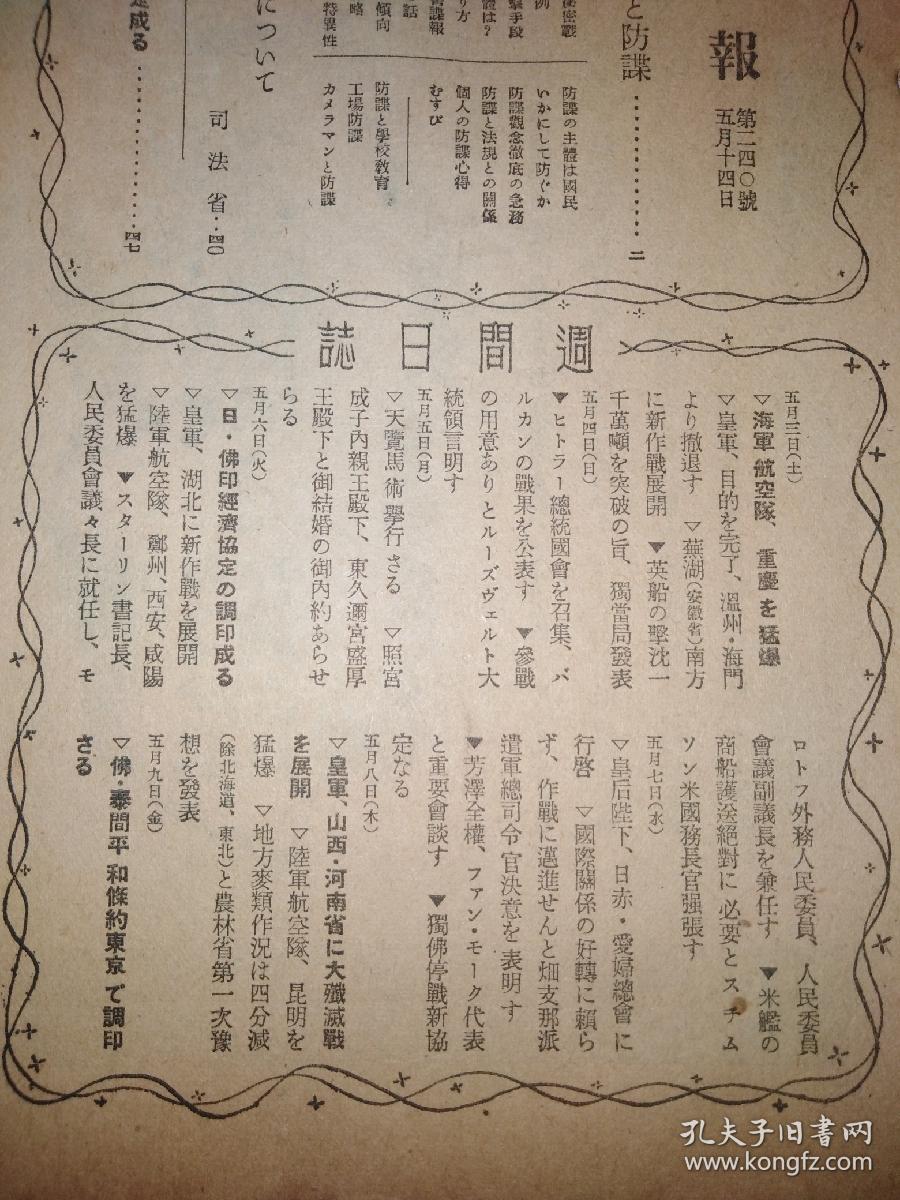 報
第二四〇號
五月十四日
と防諜……………二
防諜の主體は國民
いかにして防ぐか
防諜觀念徹底の急務
防諜と法規との關係
個人の防諜心得
むすび
防諜と學校教育
工場防諜
カメラマンと防諜
祕密戰
例
擊手段
體は？
り方
諜報
話
傾向
略
特異性
について
司法省‥四〇
成る……………四七
週間日誌
五月三日(土)
▽海軍航空隊、重慶を猛爆
▽皇軍、目的を完了、溫州・海門
より撤退す ▽蕪湖(安徽省)南方
に新作戰展開 ▼英船の擊沈一
千萬噸を突破の旨、獨當局發表
五月四日(日)
▼ヒトラー總統國會を召集、バ
ルカンの戰果を公表す ▼參戰
の用意ありとルーズヴェルト大
統領言明す
五月五日(月)
▽天覽馬術擧行さる ▽照宮
成子內親王殿下、東久邇宮盛厚
王殿下と御結婚の御內約あらせ
らる
五月六日(火)
▽日・佛印經濟協定の調印成る
▽皇軍、湖北に新作戰を展開
▽陸軍航空隊、鄭州、西安、咸陽
を猛爆 ▼スターリン書記長、
人民委員會議々長に就任し、モ
ロトフ外務人民委員、人民委員
會議副議長を兼任す ▼米艦の
商船護送絕對に必要とスチム
ソン米國務長官强張す
五月七日(水)
▽皇后陛下、日赤・愛婦總會に
行啓 ▽國際關係の好轉に賴ら
ず、作戰に邁進せんと畑支那派
遣軍總司令官決意を表明す
▼芳澤全權、ファン・モーク代表
と重要會談す ▼獨佛停戰新協
定なる
五月八日(木)
▽皇軍、山西・河南省に大殲滅戰
を展開 ▽陸軍航空隊、昆明を
猛爆 ▽地方麥類作況は四分減
(除北海道、東北)と農林省第一次豫
想を發表
五月九日(金)
▽佛・泰間平和條約東京で調印
さる
孔夫子旧书网
www.kongfz.com